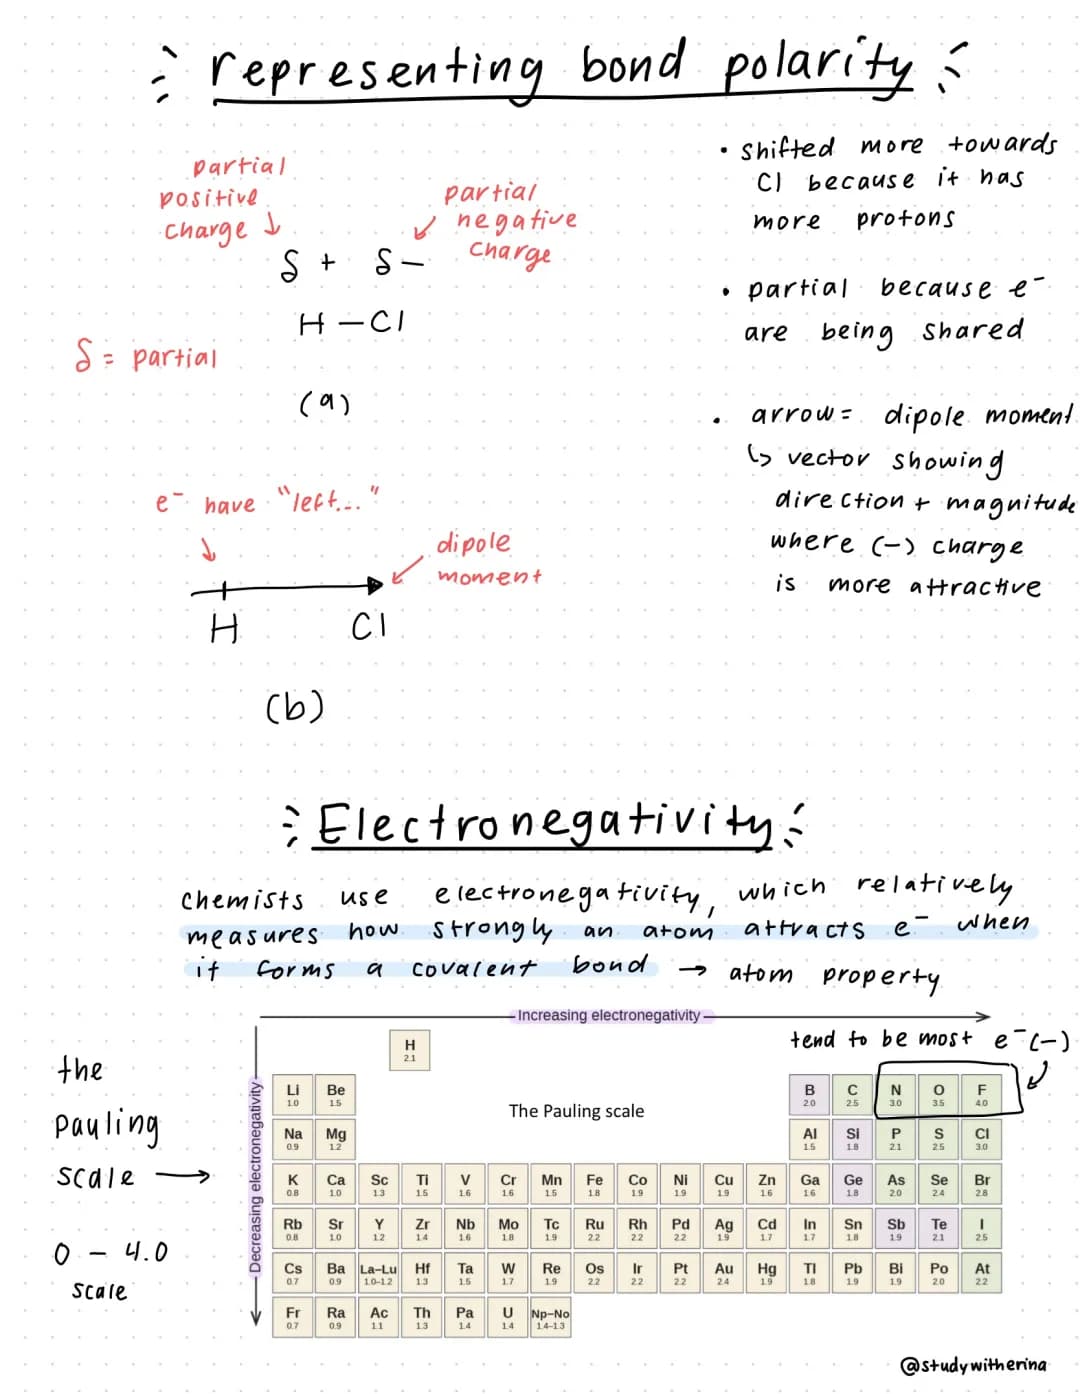 representing bond polarity
partial
positive
charge ↓
partial
negative
charge
δ + δ −
H − Cl
δ = partial
(a)
• shifted more towards
Cl because it has
more protons
• partial because e⁻
are being shared
• arrow = dipole moment
↳ vector showing
direction + magnitude
where (−) charge
is more attractive
e⁻ have "left..."
dipole
moment
H Cl
(b)
Electronegativity
chemists use electronegativity, which relatively
measures how strongly an atom attracts e⁻ when
it forms a covalent bond → atom property
Increasing electronegativity
tend to be most e⁻(−)
the
Pauling
scale →
0 − 4.0
scale
Decreasing electronegativity
The Pauling scale
H
2.1
Li Be B C N O F
1.0 1.5 2.0 2.5 3.0 3.5 4.0
Na Mg Al Si P S Cl
0.9 1.2 1.5 1.8 2.1 2.5 3.0
K Ca Sc Ti V Cr Mn Fe Co Ni Cu Zn Ga Ge As Se Br
0.8 1.0 1.3 1.5 1.6 1.6 1.5 1.8 1.9 1.9 1.9 1.6 1.6 1.8 2.0 2.4 2.8
Rb Sr Y Zr Nb Mo Tc Ru Rh Pd Ag Cd In Sn Sb Te I
0.8 1.0 1.2 1.4 1.6 1.8 1.9 2.2 2.2 2.2 1.9 1.7 1.7 1.8 1.9 2.1 2.5
Cs Ba La–Lu Hf Ta W Re Os Ir Pt Au Hg Tl Pb Bi Po At
0.7 0.9 1.0–1.2 1.3 1.5 1.7 1.9 2.2 2.2 2.2 2.4 1.9 1.8 1.9 1.9 2.0 2.2
Fr Ra Ac Th Pa U Np–No
0.7 0.9 1.1 1.3 1.4 1.4 1.4–1.3
@studywitherina